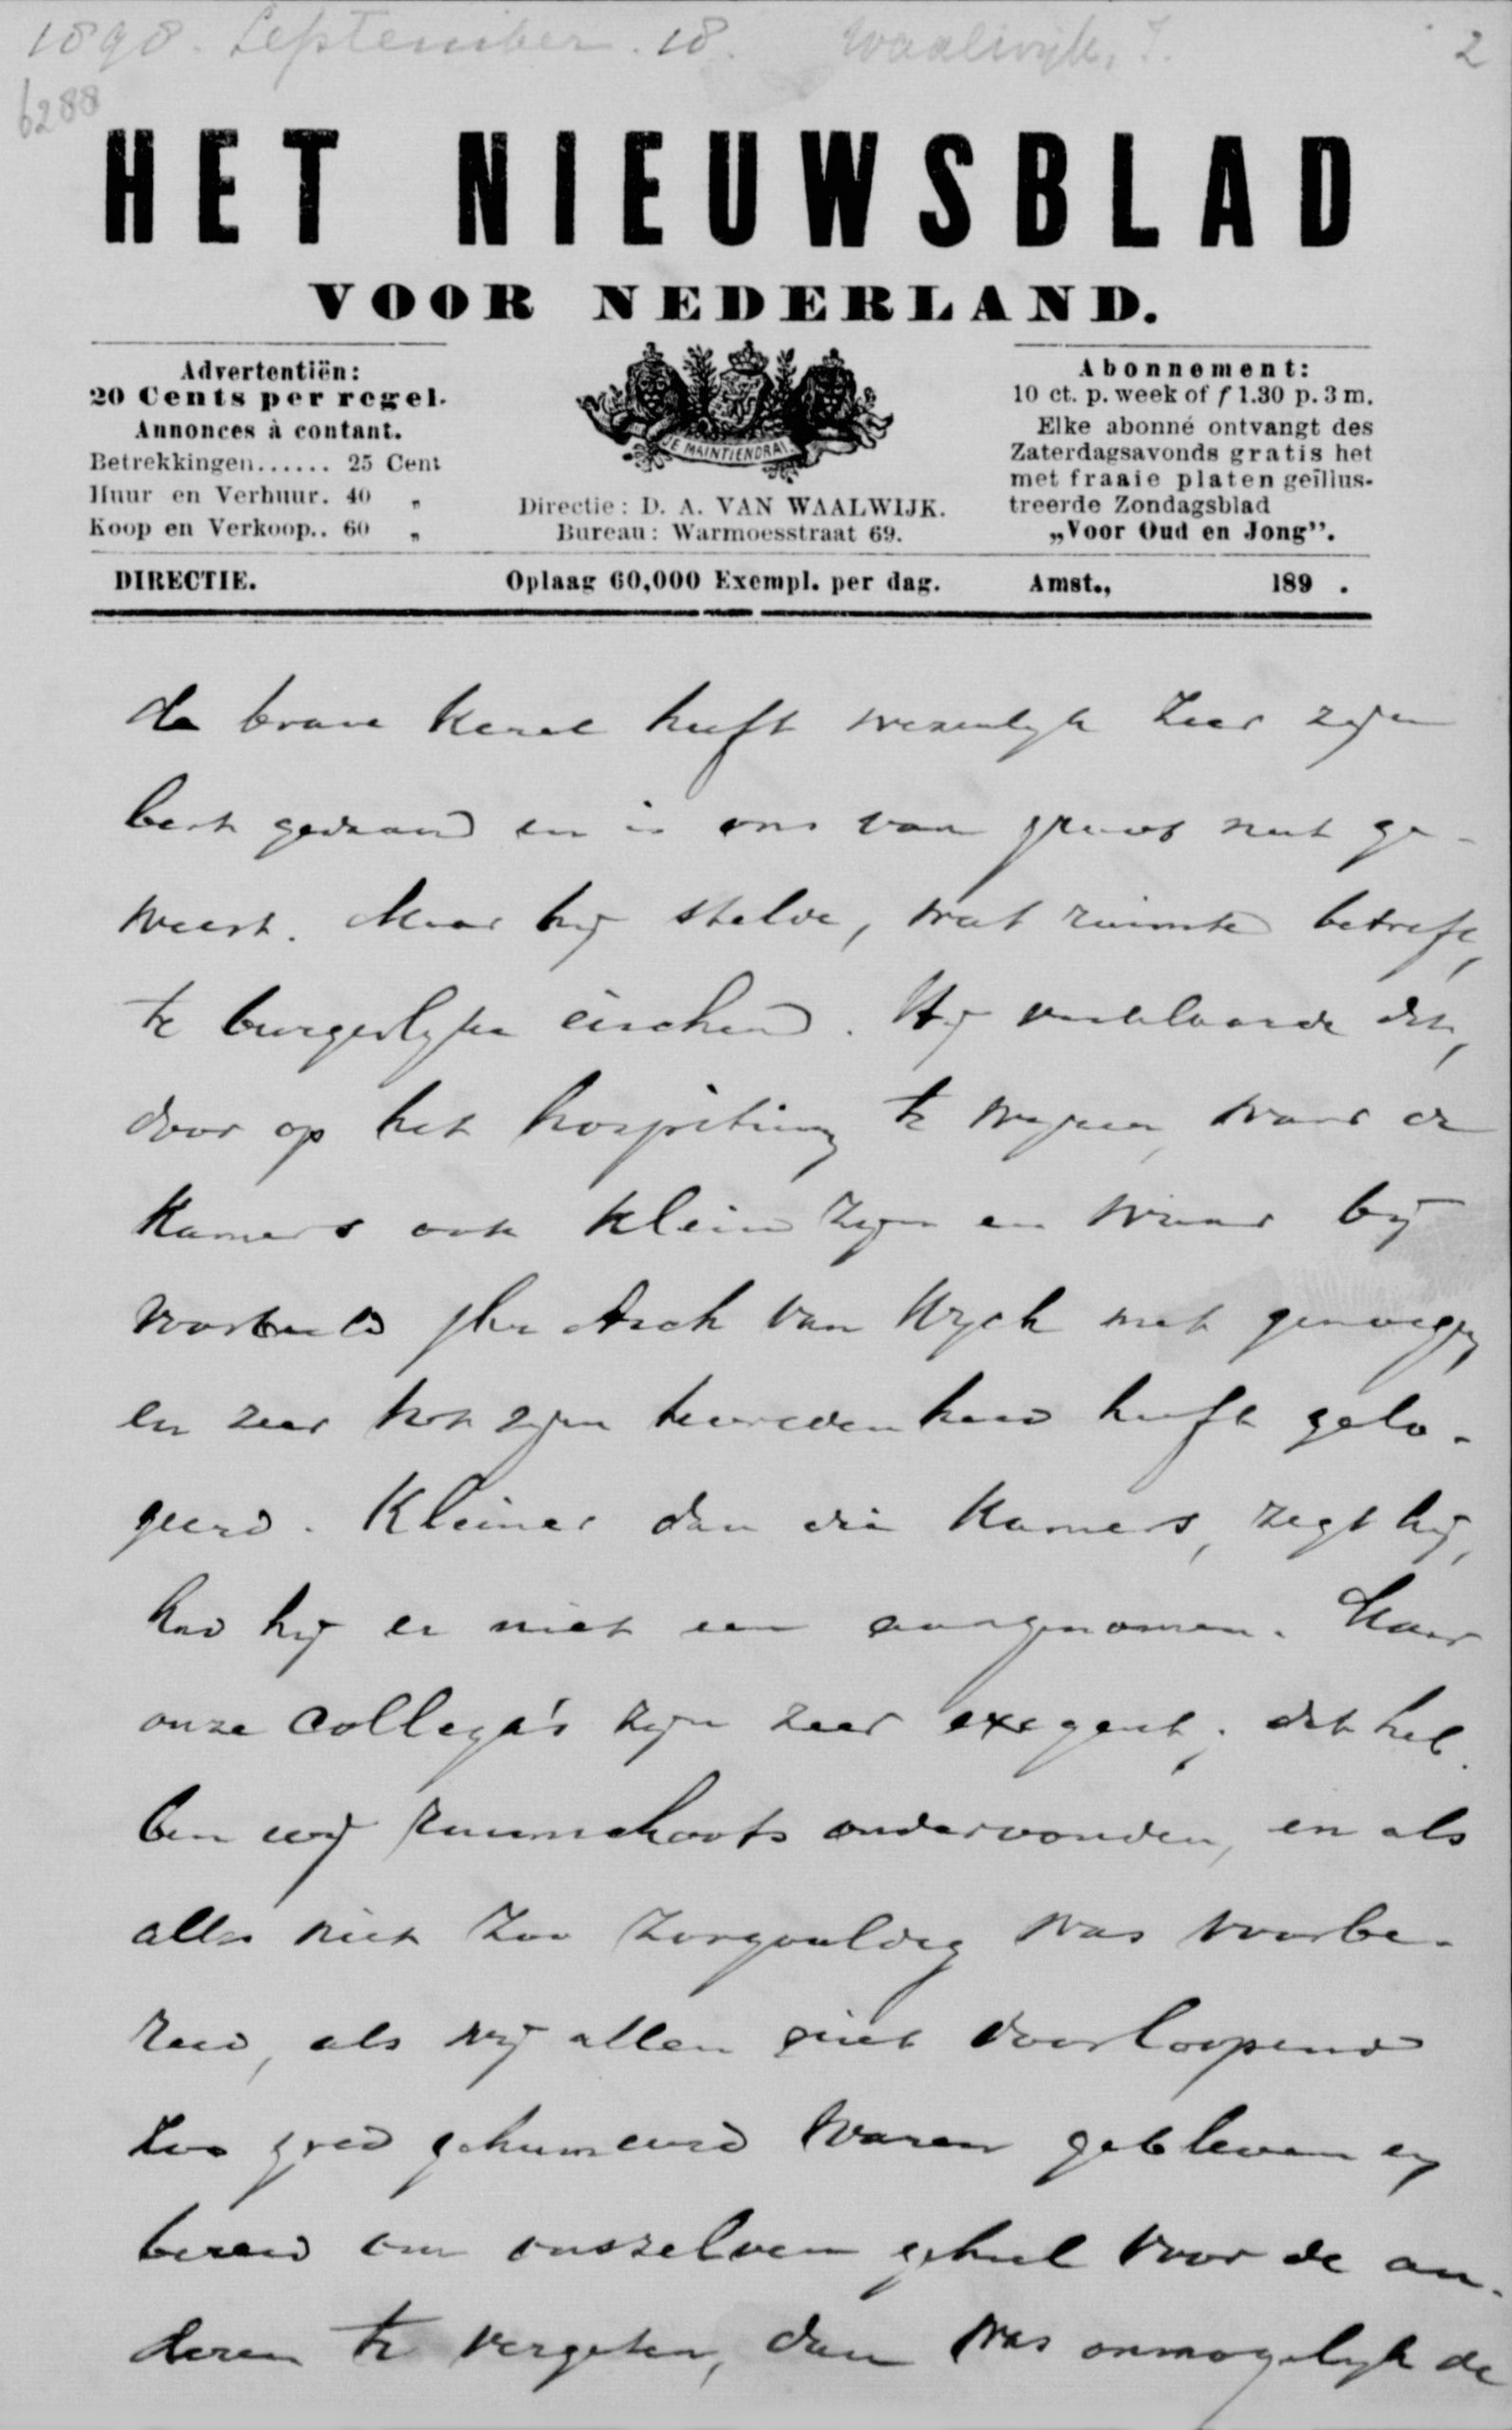 1898. September. 18. Waalwijk, J. 2
6288
HET NIEUWSBLAD
VOOR NEDERLAND.
Advertentiën:
20 Cents per regel.
Annonces à contant.
Betrekkingen...... 25 Cent
Huur en Verhuur. 40 „
Koop en Verkoop.. 60 „
JE MAINTIENDRAI
Directie: D. A. VAN WAALWIJK.
Bureau: Warmoesstraat 69.
Abonnement:
10 ct. p. week of f 1.30 p. 3 m.
Elke abonné ontvangt des
Zaterdagsavonds gratis het
met fraaie platen geïllus-
treerde Zondagsblad
„Voor Oud en Jong”.
DIRECTIE. Oplaag 60,000 Exempl. per dag. Amst., 189 .
de brave kerel heeft wezenlijk zeer zijn
best gedaan en is ons van groot nut ge-
weest. Maar hij stelde, wat ruimte betreft,
te burgerlijke eischen. Hij verklaarde dit,
door op het hospitium te wijzen, waar de
kamers ook klein zijn en waar bij
voorbeeld jhr Asch van Wijck met genoegen
en zeer tot zijn tevredenheid heeft gelo-
geerd. Kleiner dan die kamers, zegt hij,
had hij er niet een aangenomen. Maar
onze collega's zijn zeer exegent; dat heb-
ben wij ruimschoots ondervonden, en als
alles niet zoo zorgvuldig was voorbe-
reid, als wij allen niet doorloopend
zoo goed gehumeurd waren gebleven en
bereid om onszelven geheel voor de an-
deren te vergeten, dan was onmogelijk de